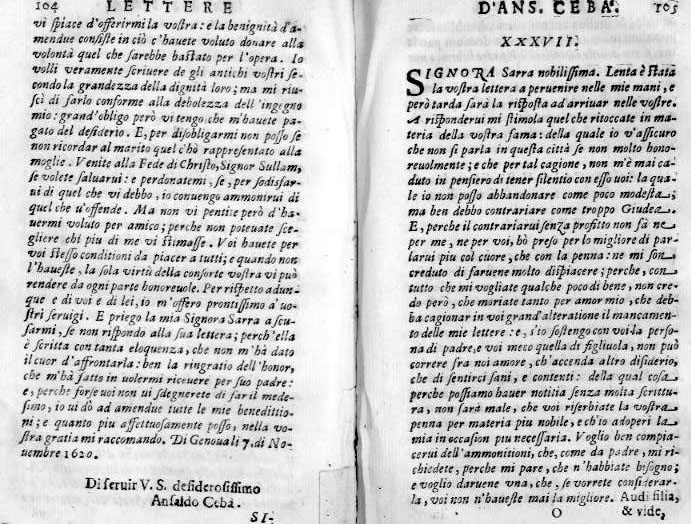 104 LETTERE
vi spiace d'offerirmi la vostra: e la benignità d'a-
mendue consiste in ciò c'hauete voluto donare alla
volontà quel che sarebbe bastato per l'opera. Io
volli veramente scriuere de gli antichi vostri se-
condo la grandezza della dignità loro; ma mi riu-
scì di farlo conforme alla debolezza dell'ingegno
mio: grand'obligo però vi tengo che m'hauete pa-
gato del desiderio. E, per disobligarmi non posso se
non ricordar al marito quel c'hò rappresentato alla
moglie. Venite alla Fede di Christo, Signor Sullam,
se volete saluarui: e perdonatemi, se, per sodisfar-
ui di quel che vi debbo, io conuengo ammonirui di
quel che u'offende. Ma non vi pentite però d'ha-
uermi voluto per amico; perche non poteuate sce-
gliere chi piu di me vi stimasse. Voi hauete per
voi stesso conditioni da piacer a tutti; e quando non
l'haueste, la sola virtù della consorte vostra vi può
rendere da ogni parte honoreuole. Per rispetto adun-
que e di voi e di lei, io m'offero prontissimo a'uo-
stri seruigi. E priego la mia Signora Sarra a scu-
sarmi, se non rispondo alla sua lettera; perch'ella
è scritta con tanta eloquenza, che non m'hà dato
il cuor d'affrontarla: ben la ringratio dell'honor,
che m'hà fatto in uolermi riceuere per suo padre:
e, perche forse uoi non ui sdegnerete di far il mede-
simo, io ui dò ad amendue tutte le mie benedittio-
ni; e quanto piu affettuosamente posso, nella vo-
stra gratia mi raccomando. Di Genoua li 7. di No-
uembre 1620.
Di seruir V. S. desiderosissimo
Ansaldo Cebà.
SI-
D'ANS. CEBA'. 105
XXXVII.
SIGNORA Sarra nobilissima. Lenta è stata
la vostra lettera a peruenire nelle mie mani, e
però tarda sarà la risposta ad arriuar nelle vostre.
A risponderui mi stimola quel che ritoccate in ma-
teria della vostra fama: della quale io v'assicuro
che non si parla in questa città se non molto hono-
reuolmente; e che per tal cagione, non m'è mai ca-
duto in pensiero di tener silentio con esso uoi: la qua-
le io non posso abbandonare come poco modesta;
ma ben debbo contrariare come troppo Giudea.
E, perche il contrariarui senza profitto non fà ne
per me, ne per voi, hò preso per lo migliore di par-
larui piu col cuore, che con la penna: ne mi son
creduto di faruene molto dispiacere; perche, con
tutto che mi vogliate qualche poco di bene, non cre-
do però, che moriate tanto per amor mio, che deb-
ba cagionar in voi grand'alteratione il mancamen-
to delle mie lettere: e, s'io sostengo con voi la perso-
na di padre, e voi meco quella di figliuola, non può
correre fra noi amore, ch'accenda altro disiderio,
che di sentirci sani, e contenti: della qual cosa
perche possiamo hauer notitia senza molta scrittu-
ra, non sarà male, che voi riserbiate la vostra
penna per materia piu nobile, e ch'io adoperi la
mia in occasion piu necessaria. Voglio ben compia-
cerui dell'ammonitioni, che, come da padre, mi ri-
chiedete, perche mi pare, che n'habbiate bisogno;
e voglio daruene una, che, se vorrete considerar-
la, voi non n'haueste mai la migliore. Audi filia,
O & vide,